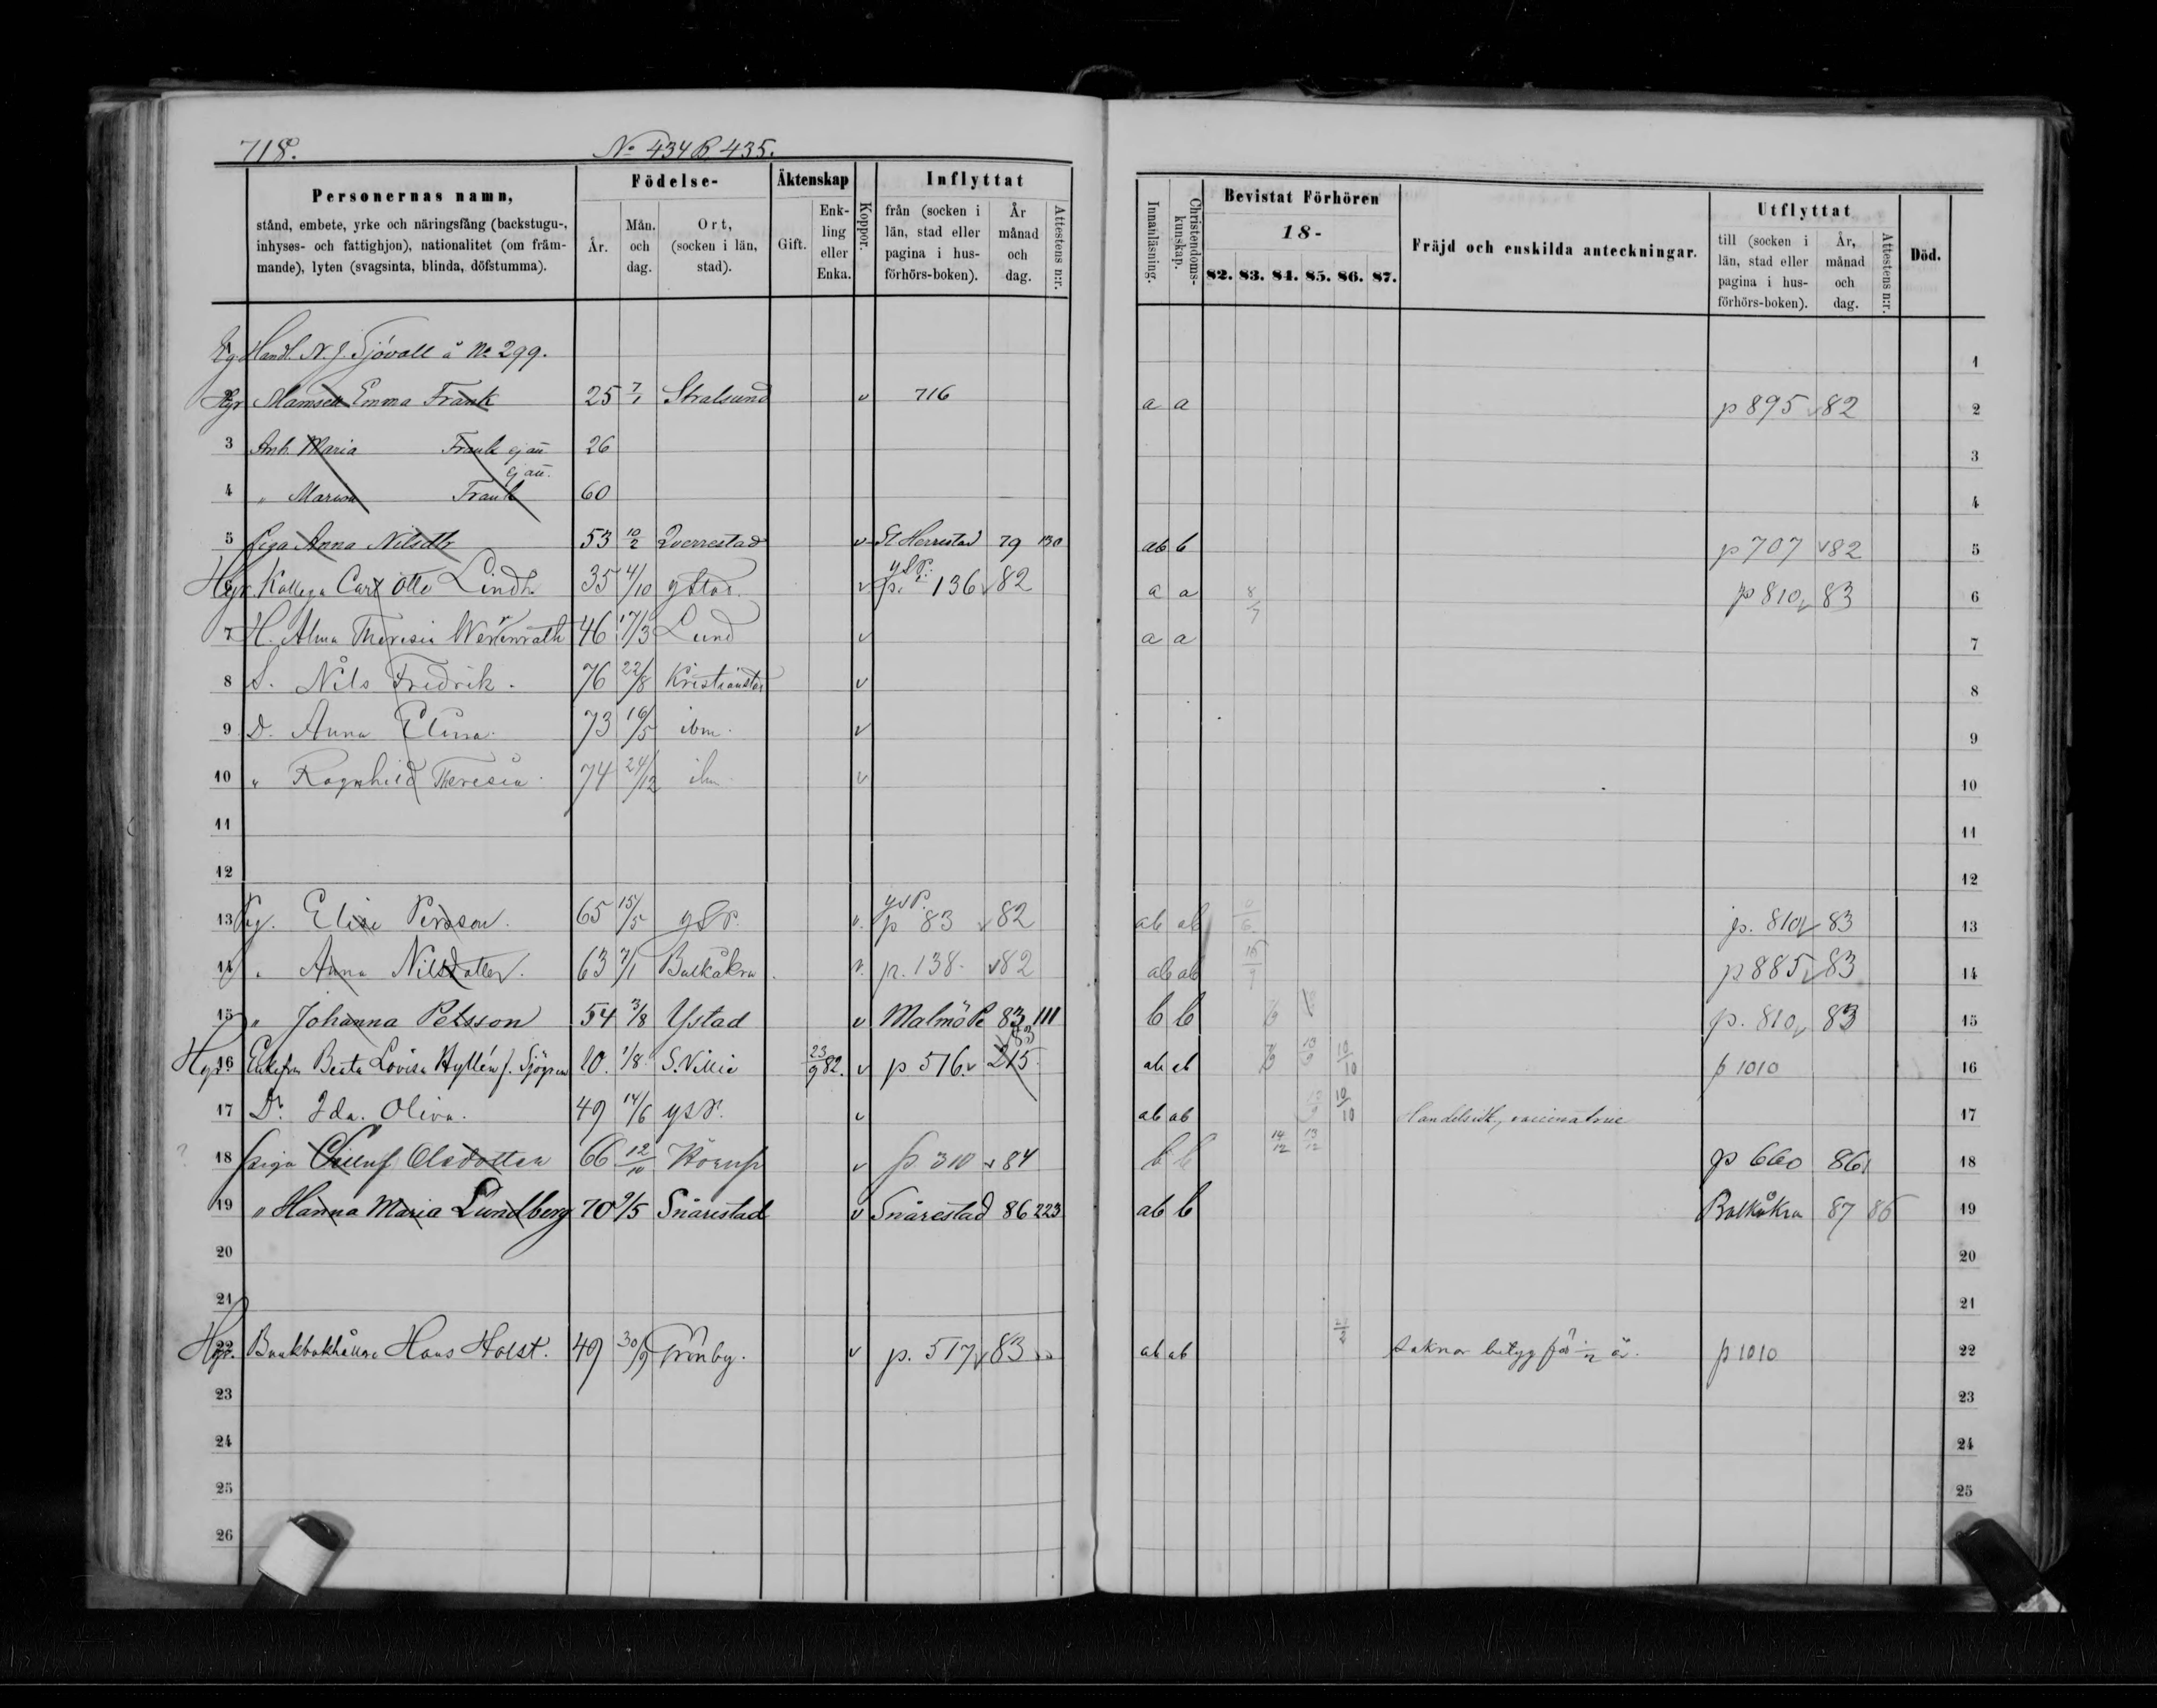 718. No 434 B 435.
Personernas namn,
stånd, embete, yrke och näringsfång (backstugu-,
inhyses- och fattighjon), nationalitet (om främ-
mande), lyten (svagsinta, blinda, döfstumma).
Födelse-
År.
Mån. och dag.
Ort, (socken i län, stad).
Äktenskap
Gift.
Enk-ling eller Enka.
Koppor.
Inflyttat
från (socken i län, stad eller pagina i hus-förhörs-boken).
År månad och dag.
Attestens n:r.
Innanläsning.
Christendoms-kunskap.
Bevistat Förhören
18-
82. 83. 84. 85. 86. 87.
Fräjd och enskilda anteckningar.
Utflyttat
till (socken i län, stad eller pagina i hus-förhörs-boken).
År, månad och dag.
Attestens n:r.
Död.
Eg Handl. N. J. Sjövall å No 299. 1
Hgr Mamsell Emma Frank 25 7/1 Stralsund v 716 a a p 895 v 82 2
3 Anh. Maria Frank ej än 26 3
4 " Frank ej än. 60 4
5 Piga Anna Nilsdtr 53 10/2 Qverrestad v St Herrestad 79 130 ab b p 707 v 82 5
Hgr. Kollega Carl Otto Lindh. 35 4/10 Ystad. v ySt. p. 136 v 82 a a 8/7 p 810 v 83 6
7 H. Alma Theresia 46 17/3 Lund v a a 7
8 S. Nils Fredrik. 76 22/8 Kristianstad v 8
9 D. Anna Elina. 73 16/5 ibm. v 9
10 " Ragnhild Theresia. 74 24/12 ibm. v 10
11 11
12 12
13 Pig. Elise Persson. 65 15/5 ySt. v. p 83 v 82 ab ab p. 810 v 83 13
14 " Anna Nilsdotter. 63 7/1 Balkåkra v. p. 138. v 82 ab ab p 885 v 83 14
15 " Johanna Persson 54 3/8 Ystad v Malmö P. 83 111 b b p. 810 v 83 15
Hgr. 16 Enkefru Beata Lovisa Hyllén f. Sjögren 10. 1/8. S. Villie 23/9 82. v p 516. v 215 83 ab ab 10/10 p 1010 16
17 Dr. Ida. Oliva. 49 14/6 ySt. v ab ab 10/10 Handelsidk., 17
18 Piga Olsdotter 66 12/10 Körup v p 310 v 84 b b 14/12 13/12 p 660 86 18
19 " Hanna Maria Lundberg 70 9/5 Snårestad v Snårestad 86 223 ab b Balkåkra 87 86 19
20 20
21 21
Hgr. 22 Bankbokhållare Hans Holst. 49 30/9 Grönby. v p. 517 v 83 ab ab saknar betyg för p 1010 22
23 23
24 24
25 25
26